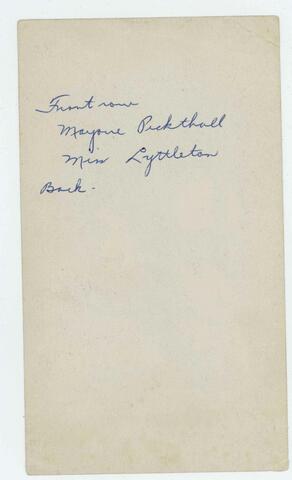 Front row
Mayorie Pickthall
Miss Lyttleton
Back.